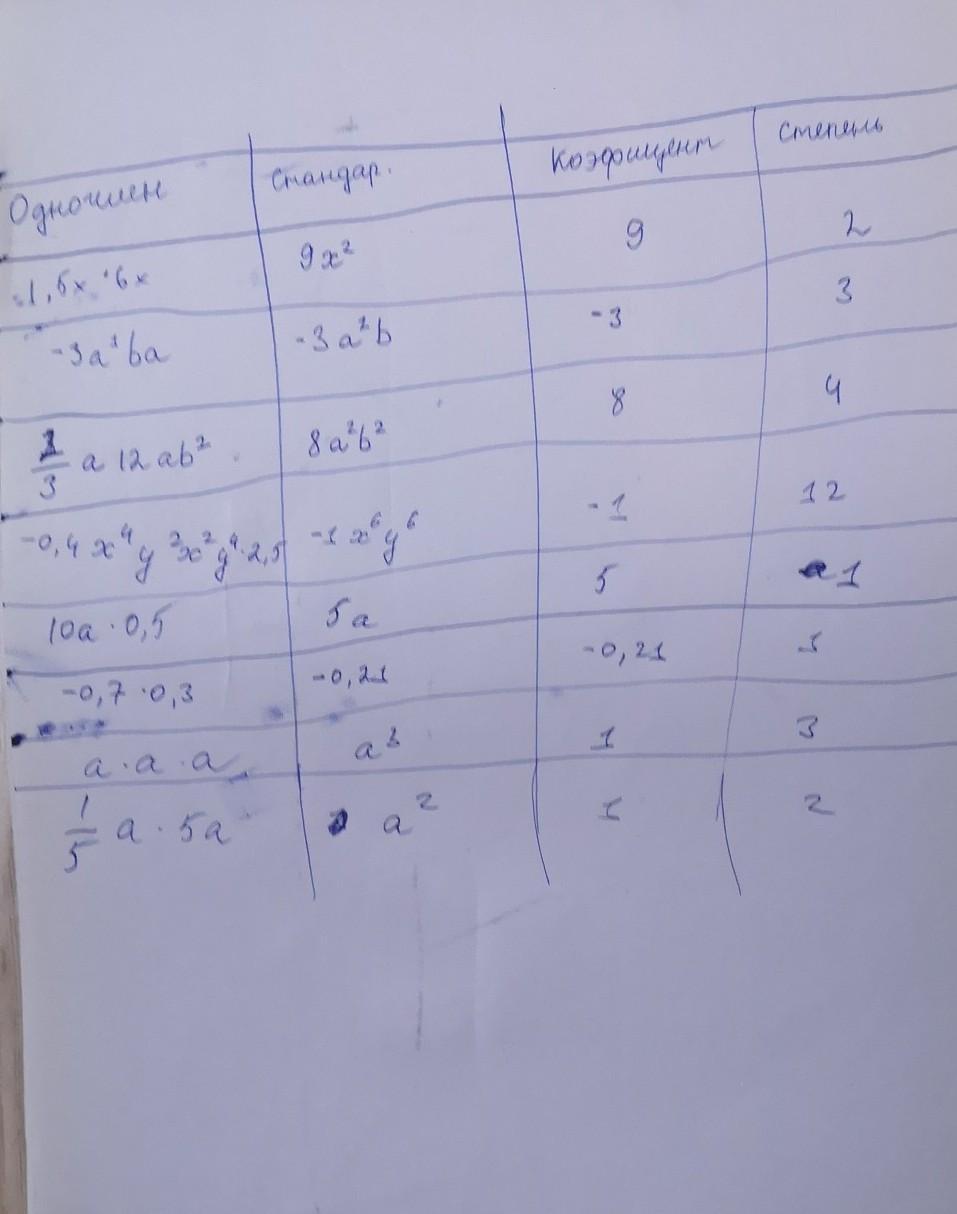 Одночлен Стандар. Коэфицент Степень
1,5x · 6x 9x² 9 2
-3a²ba -3a²b -3 3
/3 a 12ab² 8a²b² 8 4
-0,4 x⁴y²x²y⁴·2,5 -1 x⁶y⁶ -1 12
10a · 0,5 5a 5 1
-0,7 · 0,3 -0,21 -0,21 1
a · a · a a³ 1 3
1/5 a · 5a a² 1 2